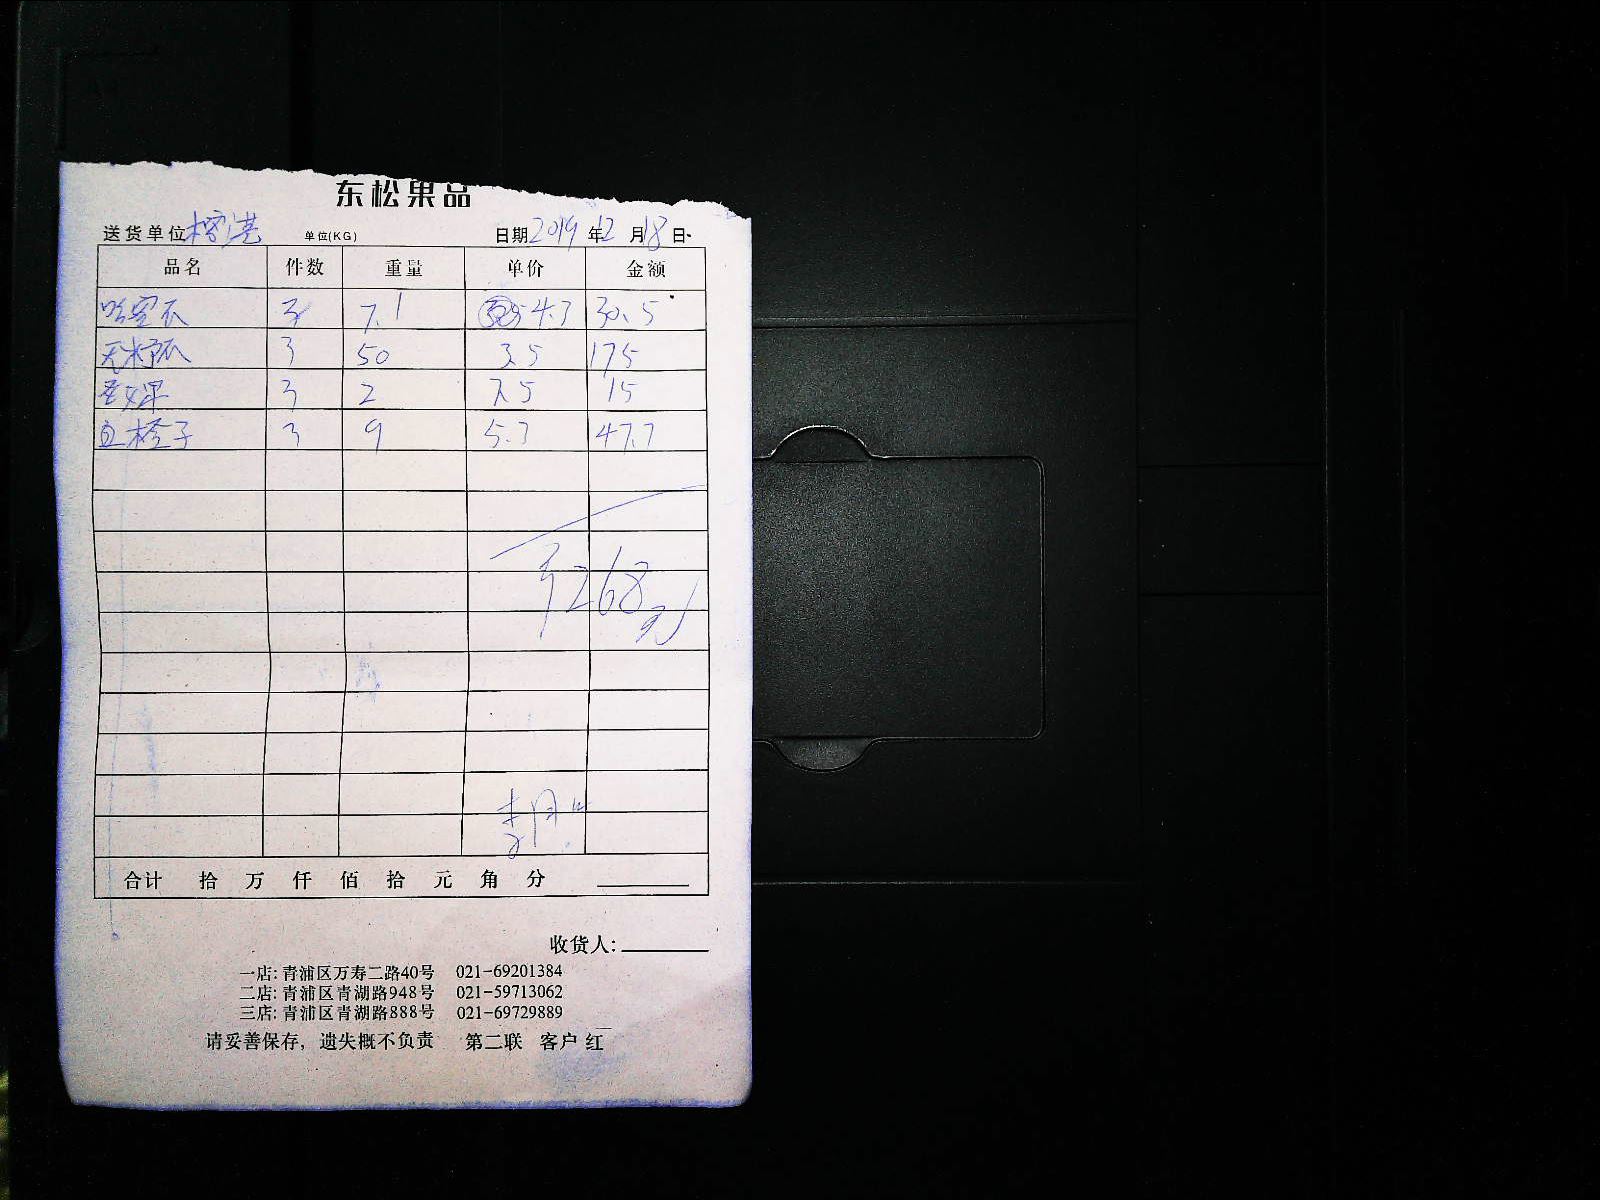 东松果品
送货单位 榕港 单位(KG) 日期 2019 年 12 月 18 日
品名 件数 重量 单价 金额
哈密瓜 3 7.1 4.3 30.5
无籽瓜 3 50 3.5 175
圣女果 3 2 7.5 15
血橙子 3 9 5.3 47.7
¥268元
合计 拾 万 仟 佰 拾 元 角 分
收货人:
一店: 青浦区万寿二路40号 021-69201384
二店: 青浦区青湖路948号 021-59713062
三店: 青浦区青湖路888号 021-69729889
请妥善保存，遗失概不负责 第二联 客户 红